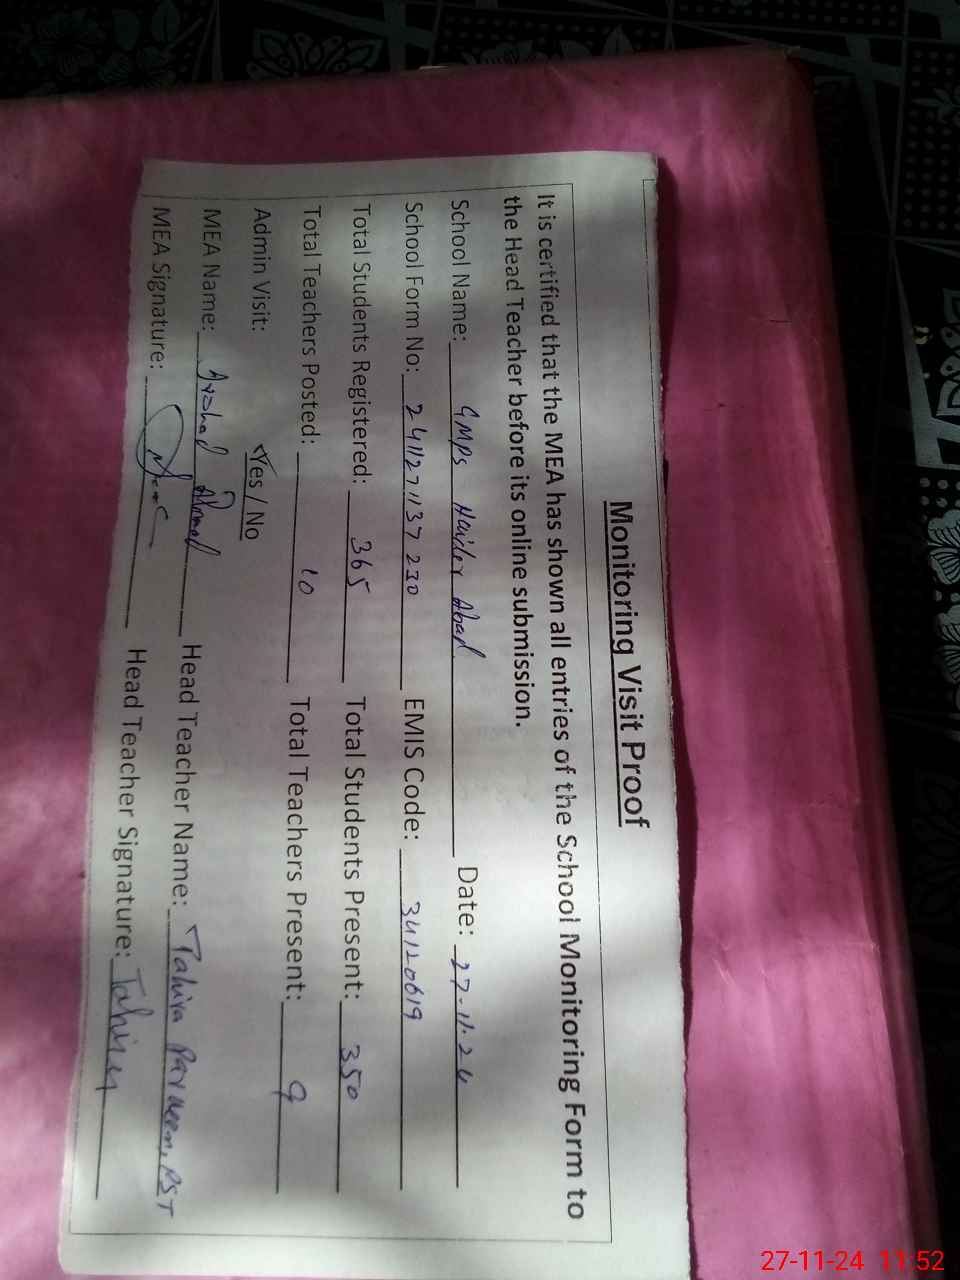 Monitoring Visit Proof
It is certified that the MEA has shown all entries of the School Monitoring Form to
the Head Teacher before its online submission.
School Name: GMPS Haider Abad Date: 27.11.24
School Form No: 2411271137230 EMIS Code: 34120619
Total Students Registered: 365 Total Students Present: 350
Total Teachers Posted: 10 Total Teachers Present: 9
Admin Visit: Yes / No
MEA Name: Arshad Ahmad Head Teacher Name: Tahira Parveen, PST
MEA Signature: Head Teacher Signature: Tahira
27-11-24 11:52